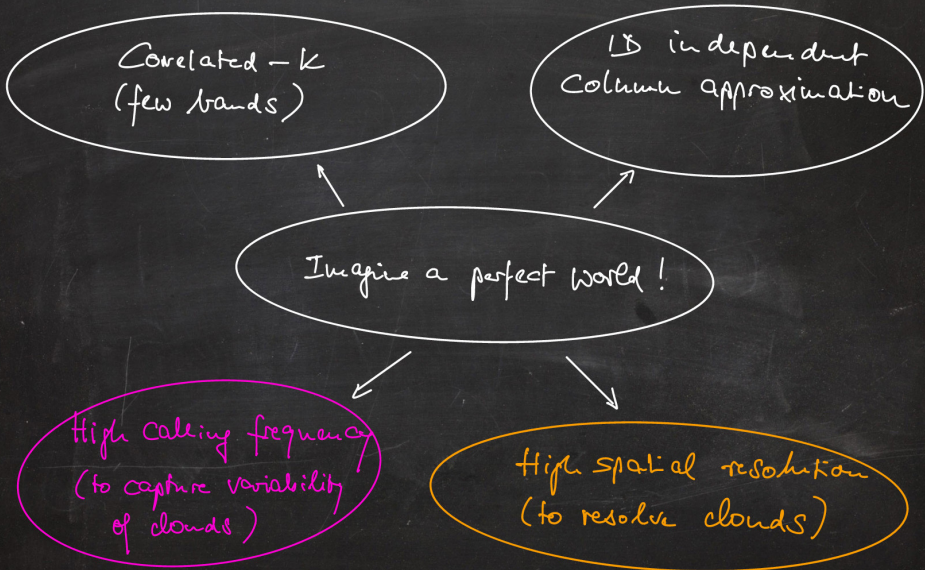 Correlated - k
(few bands)
1D independent
Column approximation
Imagine a perfect world!
High calling frequency
(to capture variability
of clouds)
High spatial resolution
(to resolve clouds)